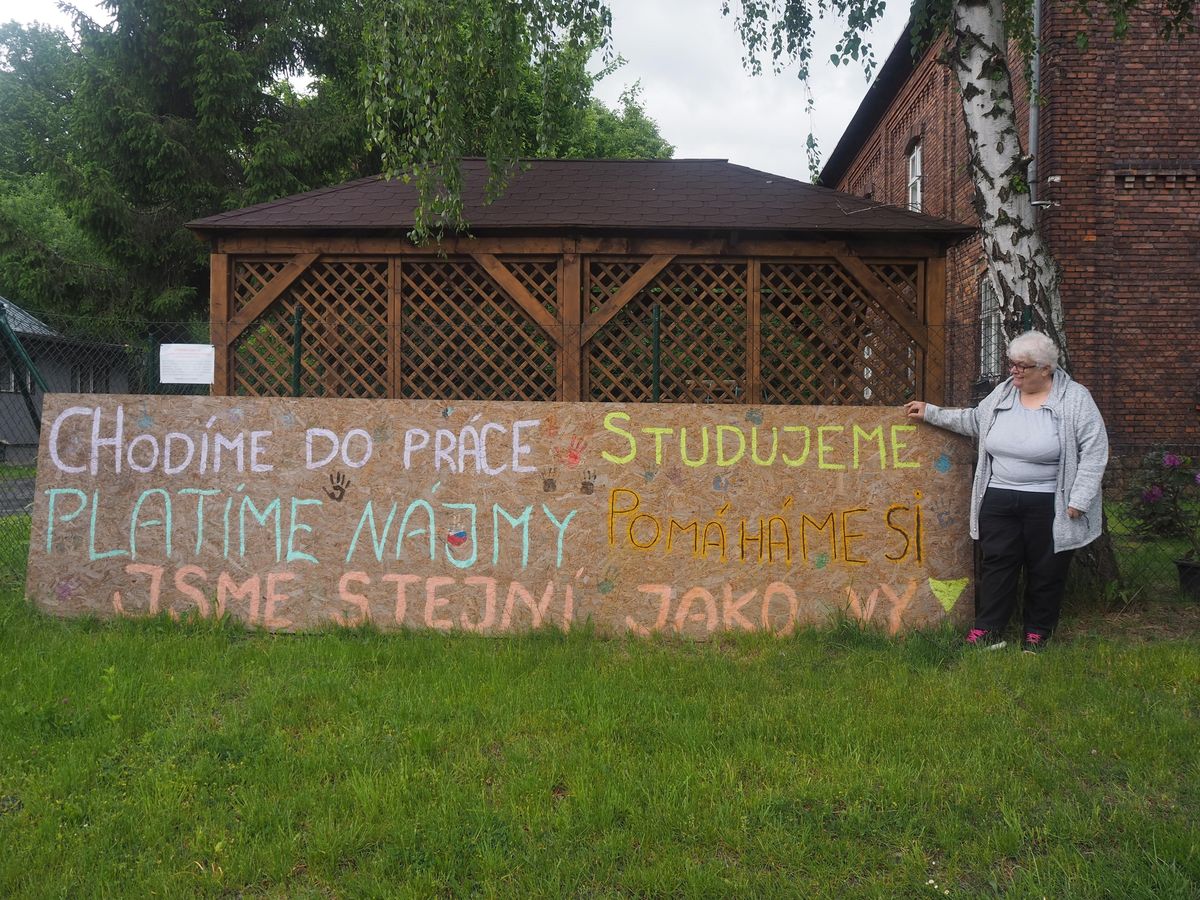 CHODÍME DO PRÁCE STUDUJEME
PLATÍME NÁJMY POMÁHÁME SI
JSME STEJNÍ JAKO VY